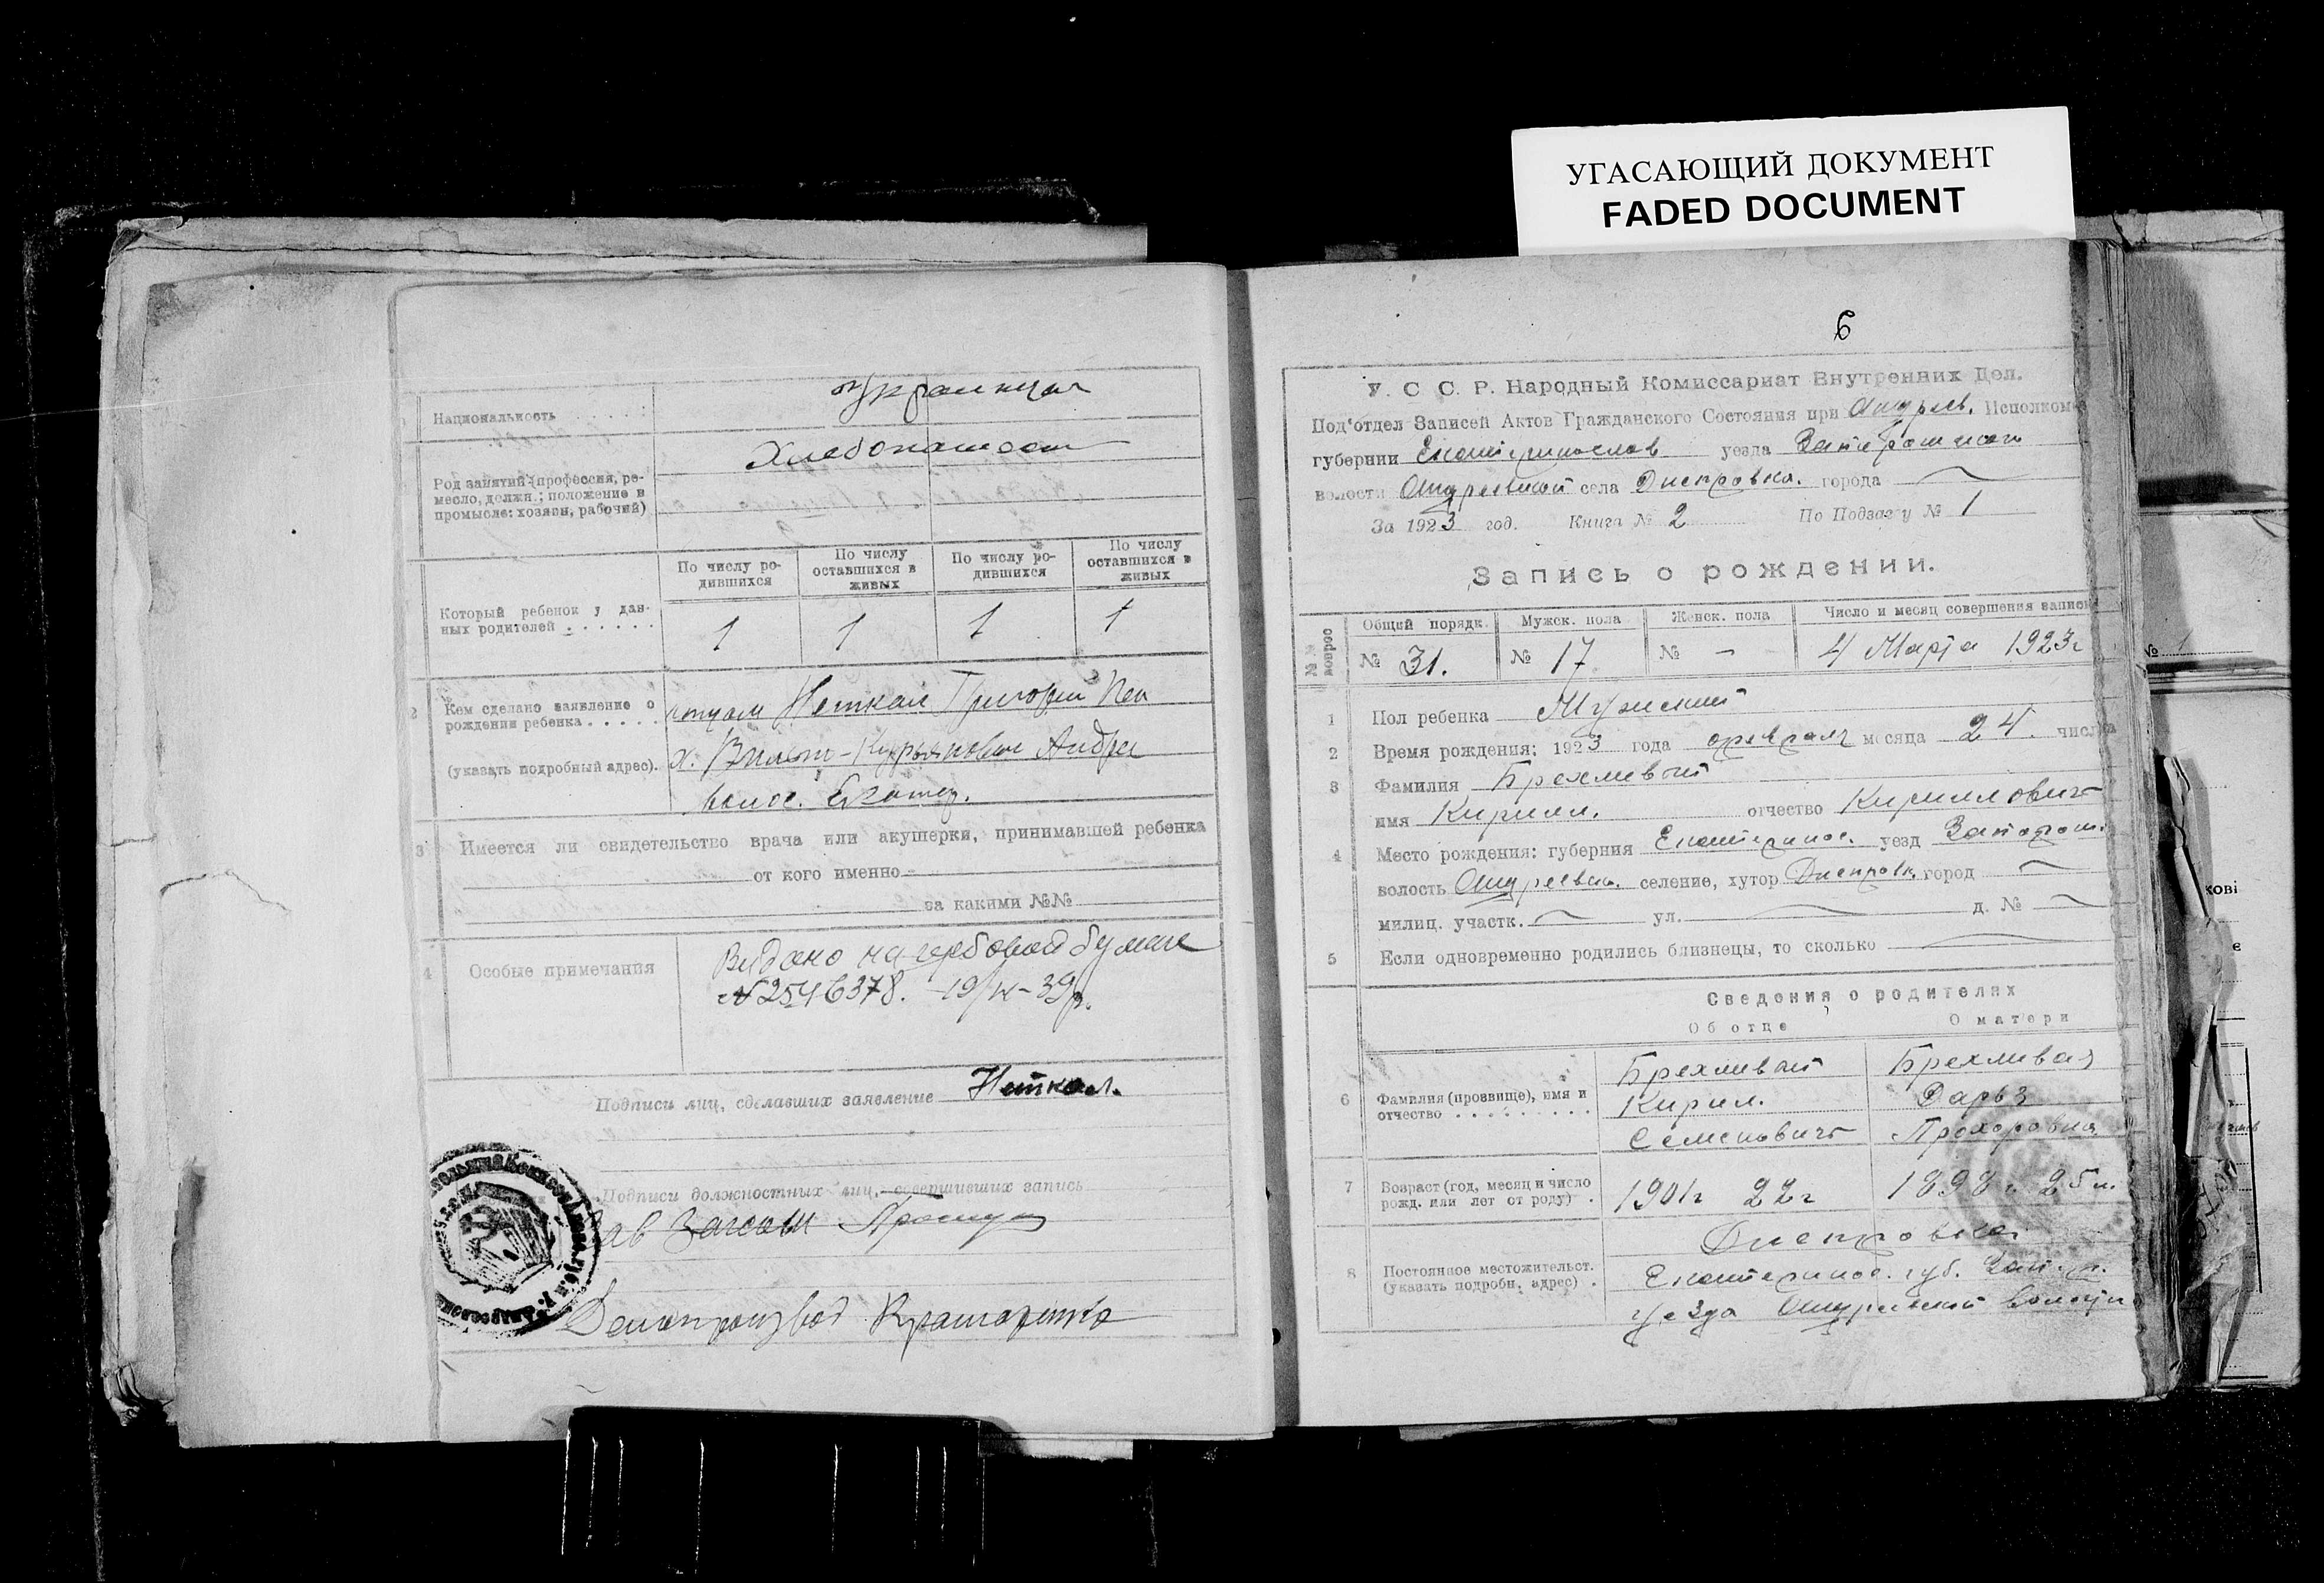 УГАСАЮЩИЙ ДОКУМЕНТ
FADED DOCUMENT
Национальность . . . . . :
украинцы
Род занятий (профессия, ре-
месло, должн.; положение в
промысле: хозяин, рабочий)
Хлебопашест
По числу ро-
дившихся
По числу
оставшихся в
живых
По числу ро-
дившихся
По числу
оставшихся в
живых
Который ребенок у дан-
ных родителей . . . . . .
1 1 1 1
2 Кем сделано заявление о
рождении ребенка . . . . .
(указать подробный адрес).
отцом Неткал Григорий
х. Андре
волос. Екатер.
3 Имеется ли свидетельство врача или акушерки, принимавшей ребенка
от кого именно
за какими №№
4 Особые примечания
Видано на гербовой бумаге
№2546378. 19/ -39р.
Подписи лиц, сделавших заявление Неткал.
Подписи должностных лиц, совершивших запись
Зав Загсом
Делопроизвод
6
У. С С. Р. Народный Комиссариат Внутренних Дел.
Под‘отдел Записей Актов Гражданского Состояния при Андреев. Исполком
губернии Екатеринослав уезда Запорожского
волости Андреевской села Днепровка. города
За 1923 год. Книга № 2 По Подзагу № 1
Запись о рождении.
№№ вопрос
Общий порядк. Мужск. пола Женск. пола Число и месяц совершения записи
№ 31. № 17. № – 4 Марта 1923г
1 Пол ребенка Мужский
2 Время рождения; 1923 года февраля месяца 24. числа
3 Фамилия Брехливый
имя Кирилл. отчество Кириллович
4 Место рождения: губерния Екатеринос. уезд Запорож.
волость Андреевск. селение, хутор Днепровк. город
милиц. участк. ул. д. №
5 Если одновременно родились близнецы, то сколько
Сведения о родителях
Об отце О матери
6 Фамилия (прозвище), имя и
отчество . . . . . . . . .
Брехливый Брехливая
Кирил. Дарья
Семенович Прохоровна
7 Возраст (год, месяц и число
рожд. или лет от роду) .
1901г 22г 1898г. 25л.
8 Постоянное местожительст.
(указать подробн. адрес) .
Днепровка
Екатеринос. губ. Запор.
уезда Андреевской волости
№ 1